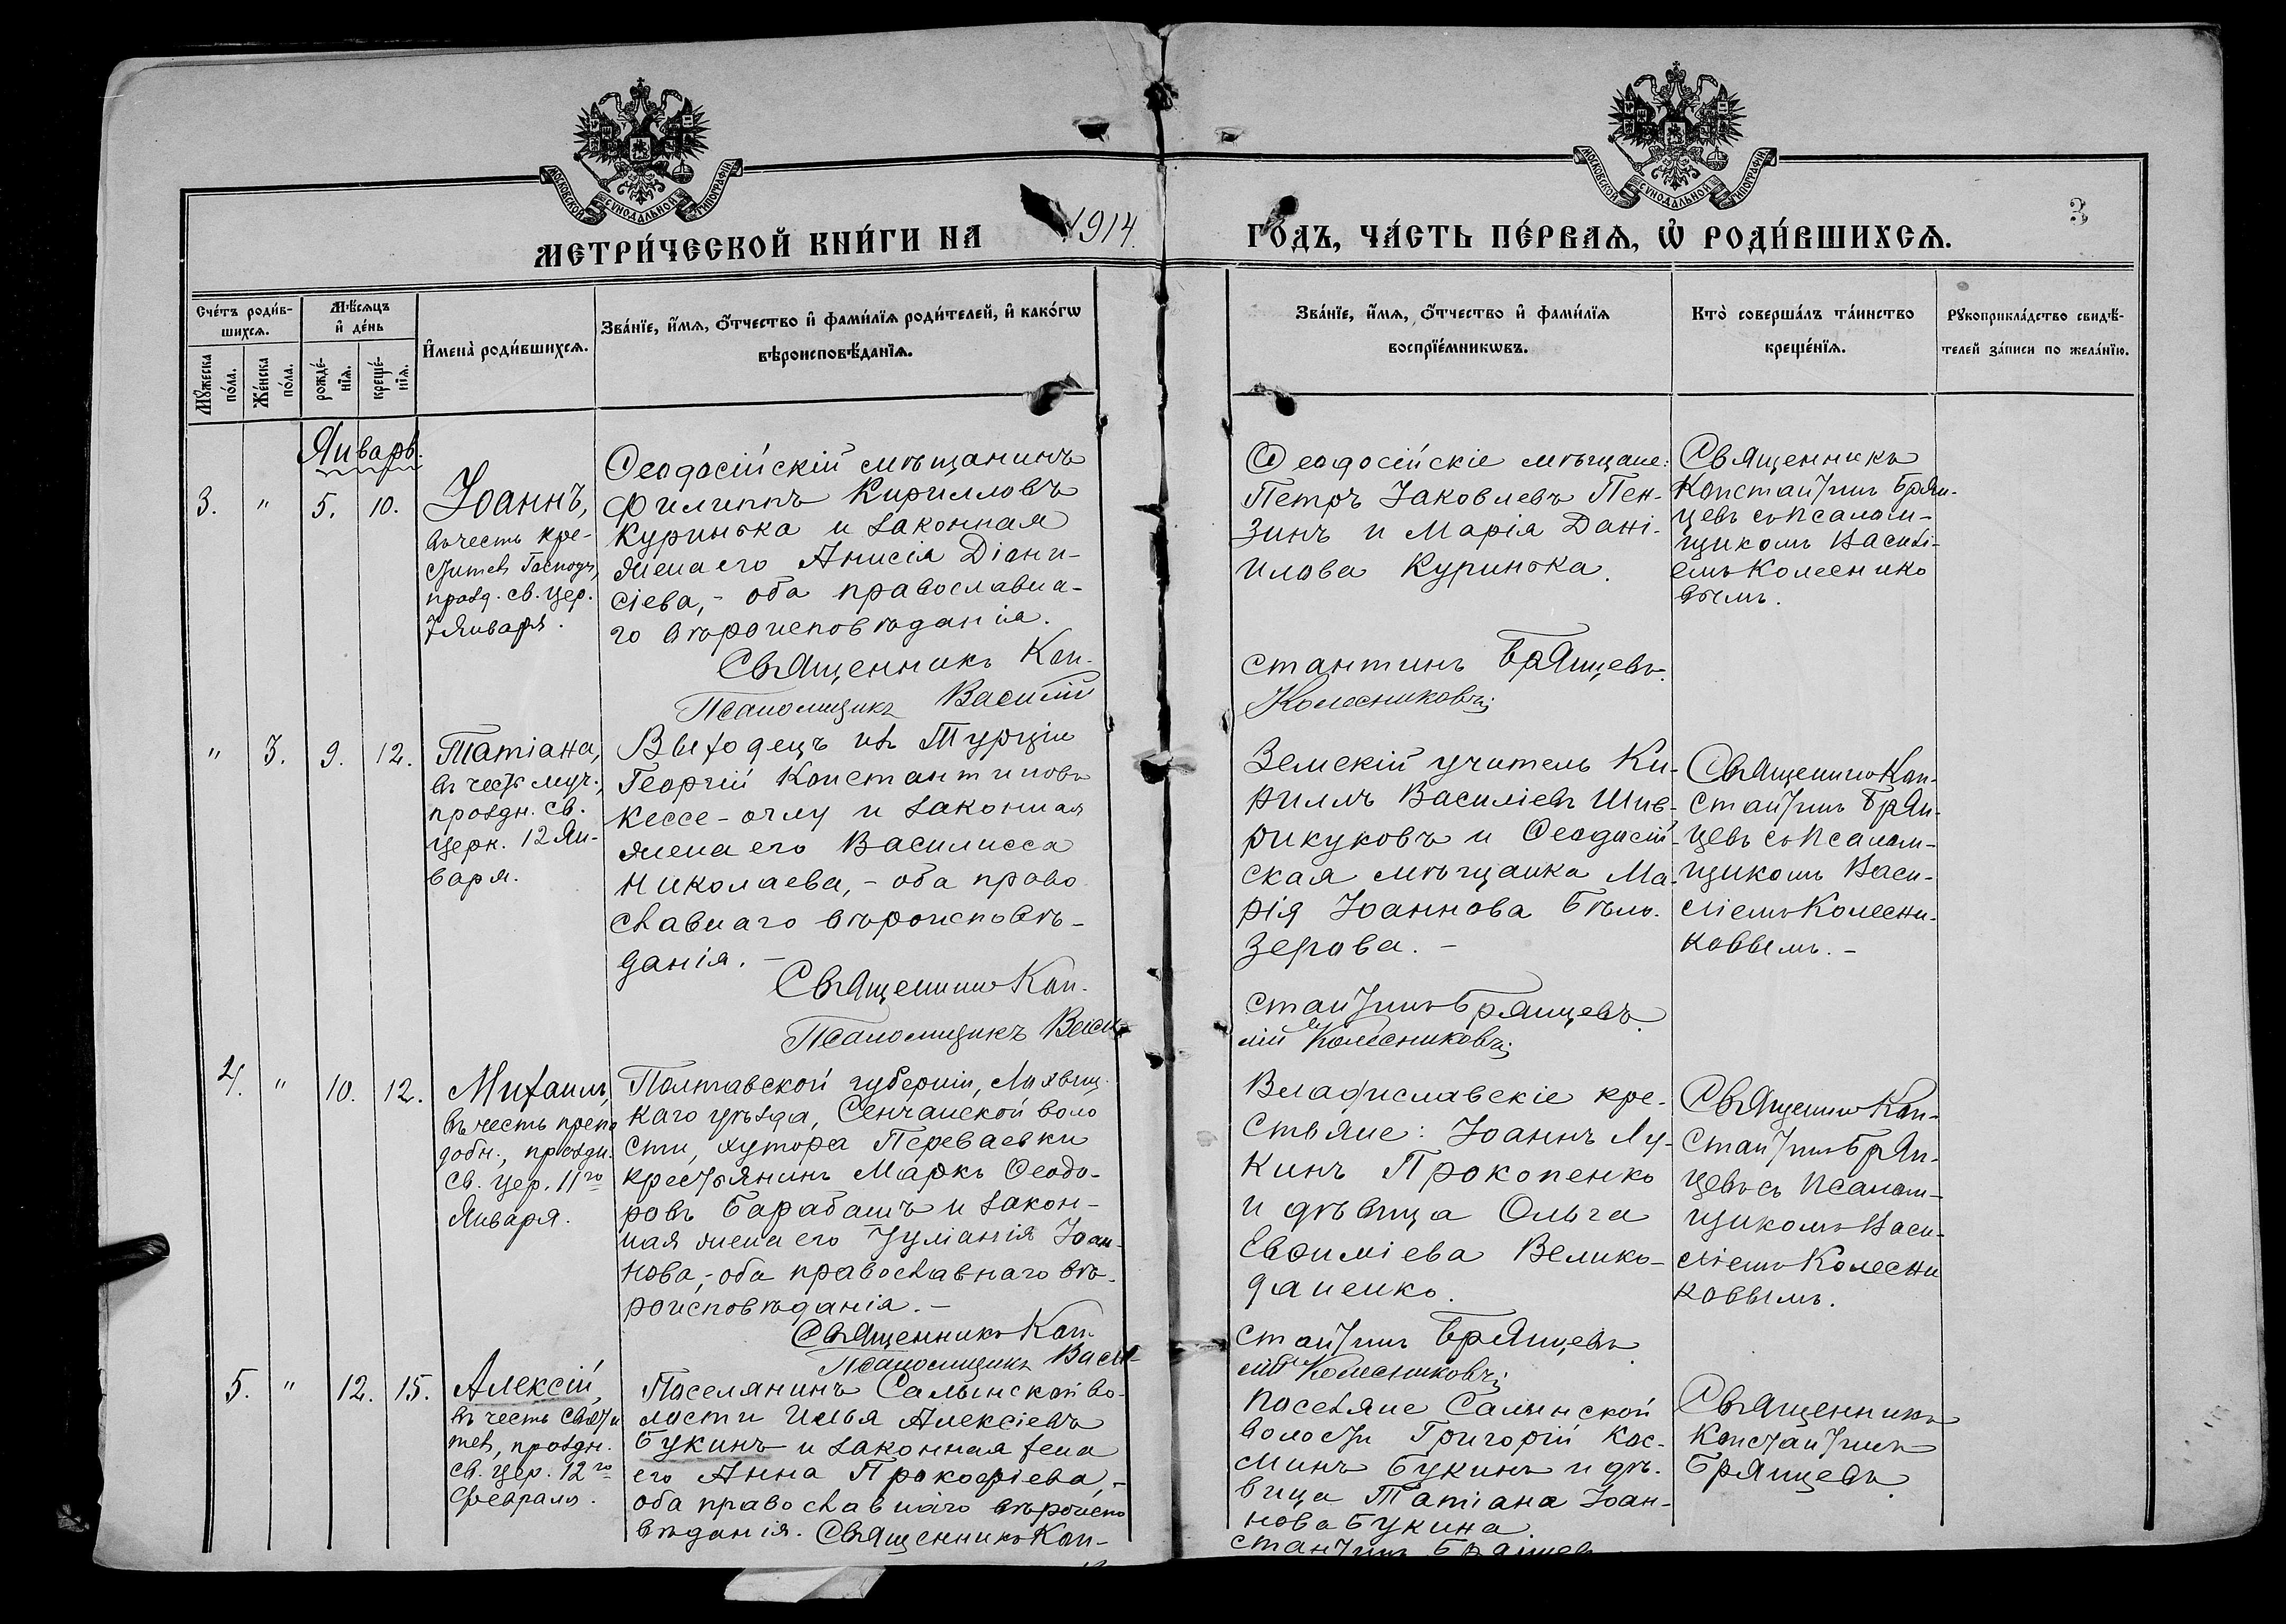 МОСКОВСКОЙ СУНОДАЛЬНОЙ ТИПОГРАФІИ
МОСКОВСКОЙ СУНОДАЛЬНОЙ ТИПОГРАФІИ
МЕТРИ́ЧЕСКОЙ КНИ́ГИ НА 1914.
ГО́ДЪ, ЧА́СТЬ ПЕ́РВАѦ, Ѡ҆ РОДИ́ВШИХСѦ.
3
Сче́тъ роди́в-
шихсѧ.
Мꙋ́жеска
по́ла.
Же́нска
по́ла.
Мѣ́сѧцъ
и҆ де́нь
рожде́-
нїѧ.
креще́-
нїѧ.
И҆мена̀ роди́вшихсѧ.
Зва́нїе, и҆́мѧ, ѻ҆́тчество и҆ фами́лїѧ роди́телей, и҆ како́гѡ
вѣроисповѣ́данїѧ.
Зва́нїе, и҆́мѧ, ѻ҆́тчество и҆ фами́лїѧ
воспрїе́мникѡвъ.
Кто̀ соверша́лъ та́инство
креще́нїѧ.
Рꙋкоприкла́дство свидѣ́-
телей за́писи по жела́нїю.
Январь.
3.
"
5.
10.
Іоаннъ,
въ честь кре-
стителя Господн,
празд. св. цер.
7 Января.
Ѳеодосійскій мѣщанинъ
Филиппъ Кирилловъ
Куринька и законная
жена его Анисія Діони-
сіева, - оба православна-
го вѣроисповѣданія.
Священникъ Кон-
Псаломщикъ Василій
Ѳеодосійскіе мѣщане:
Петръ Іаковлевъ Пен-
зинъ и Марія Дані-
илова Куринька.
стантинъ Брянцевъ.
Колесниковъ
Священникъ
Константинъ Брян-
цевъ съ псалом-
щикомъ Василі-
емъ Колеснико
вымъ.
"
3.
9.
12.
Татіана,
въ честь муч.,
праздн. св.
церк. 12 Ян-
варя.
Выходецъ изъ Турціи
Георгій Константиновъ
Кессе-оглу и законная
жена его Василисса
Николаева, - оба право
славнаго вѣроисповѣ-
данія. -
Священникъ Кон-
Псаломщикъ Васи
Земскій учитель Ки-
риллъ Василіевъ Шив-
рикуковъ и Ѳеодосій-
ская мѣщанка Ма-
рія Іоаннова Бѣло-
зерова. -
стантинъ Брянцевъ.
лій Колесниковъ
Священникъ Кон-
стантинъ Брян-
цевъ съ псалом-
щикомъ Васи-
ліемъ Колесни-
ковымъ. -
4.
"
10.
12.
Михаилъ,
въ честь препо
добн., праздн.
св. цер. 11го
Января.
Полтавской губерніи, Лохвиц-
каго уѣзда, Сенчанской воло
сти, хутора Переваевки
крестьянинъ Маркъ Ѳеодо-
ровъ Барабашъ и закон-
ная жена его Іуліанія Іоан-
нова, - оба православнаго вѣ-
роисповѣданія. -
Священникъ Кон-
Псаломщикъ Васи-
Владиславскіе кре-
стьяне: Іоаннъ Лу-
кинъ Прокопенко
и дѣвица Ольга
Евѳиміева Велико-
даненко.
стантинъ Брянцевъ.
лій Колесниковъ
Священникъ Кон-
стантинъ Брян-
цевъ съ псалом-
щикомъ Васи-
ліемъ Колесни
ковымъ.
5.
"
12.
15.
Алексій,
въ честь святи
теля, праздн.
св. цер. 12го
Февраля.
Поселянинъ Салынской во-
лости Илья Алексіевъ
Букинъ и законная жена
его Анна Прокофіева, -
оба православнаго вѣроиспо
вѣданія. Священникъ Кон-
Поселяне Салынской
волости Григорій Кос-
минъ Букинъ и дѣ-
вица Татіана Іоан-
нова Букина.
стантинъ Брянцевъ
Священникъ
Константинъ
Брянцевъ.